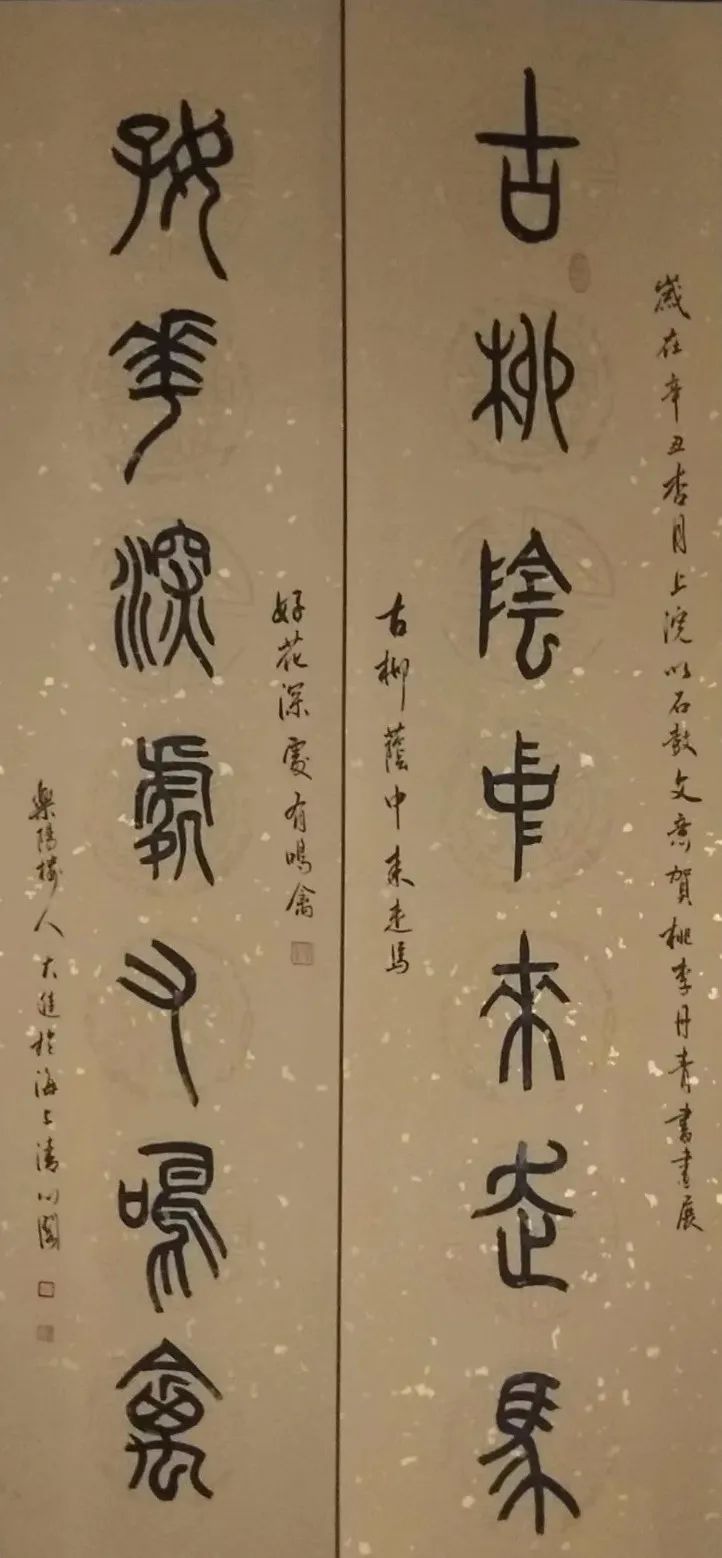 歲在辛丑杏月上浣以石鼓文意賀桃李丹青書畫展
古柳陰中來走馬
古柳蔭中来走馬
好花深處有鳴禽
好華深處又鳴禽
樂陽樓人大進於海上清心閣